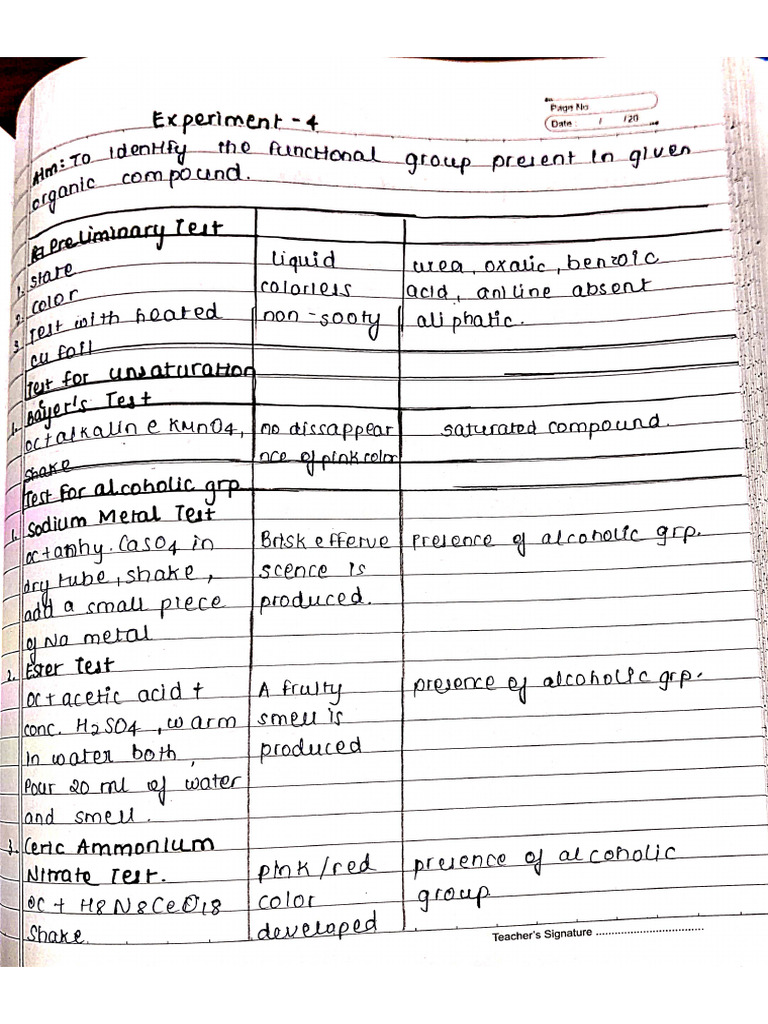 Page No
Date : / /20
Experiment - 4
Aim: To identify the functional group present in given
organic compound.
Preliminary Test
1. state liquid urea, oxalic, benzoic
2. color colorless acid, aniline absent
3. Test with heated non-sooty aliphatic.
cu foil
Test for unsaturation
1. Bayer's Test
oc + alkalin e KMnO4, no dissappear saturated compound.
shake nce of pink color
Test for alcoholic grp
1. Sodium Metal Test
oc + anhy. CaSO4 in Brisk efferve presence of alcoholic grp.
dry tube, shake, scence is
add a small piece produced.
of Na metal
2. Ester Test
oc + acetic acid + A fruity presence of alcoholic grp.
conc. H2SO4, warm smell is
in water both, produced
Pour 20 ml of water
and smell.
3. Ceric Ammonium
Nitrate Test. pink/red presence of alcoholic
oc + H8N8CeO18 color group
Shake. developed
Teacher's Signature ..................................